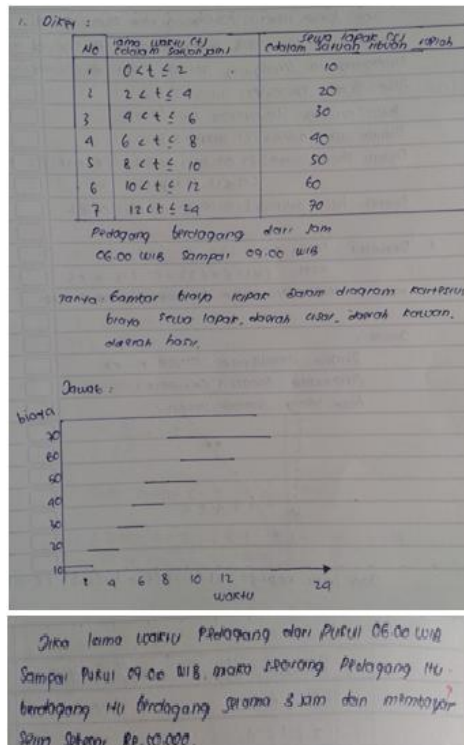 1. Diket :
No lama waktu (t) (dalam satuan jam) sewa lapak (S) (dalam satuan ribuan rupiah
1 0 < t ≤ 2 10
2 2 < t ≤ 4 20
3 4 < t ≤ 6 30
4 6 < t ≤ 8 40
5 8 < t ≤ 10 50
6 10 < t ≤ 12 60
7 12 < t ≤ 24 70
Pedagang berdagang dari jam
06.00 WIB sampai 09.00 WIB
Tanya : Gambar biaya lapak dalam diagram kartesius
biaya sewa lapak, daerah asal, daerah kawan,
daerah hasil
Jawab :
biaya
70
60
50
40
30
20
10
2 4 6 8 10 12 24
waktu
Jika lama waktu pedagang dari pukul 06.00 WIB
sampai pukul 09.00 WIB, maka seorang pedagang itu
berdagang itu berdagang selama 3 jam dan membayar ?
Rp.